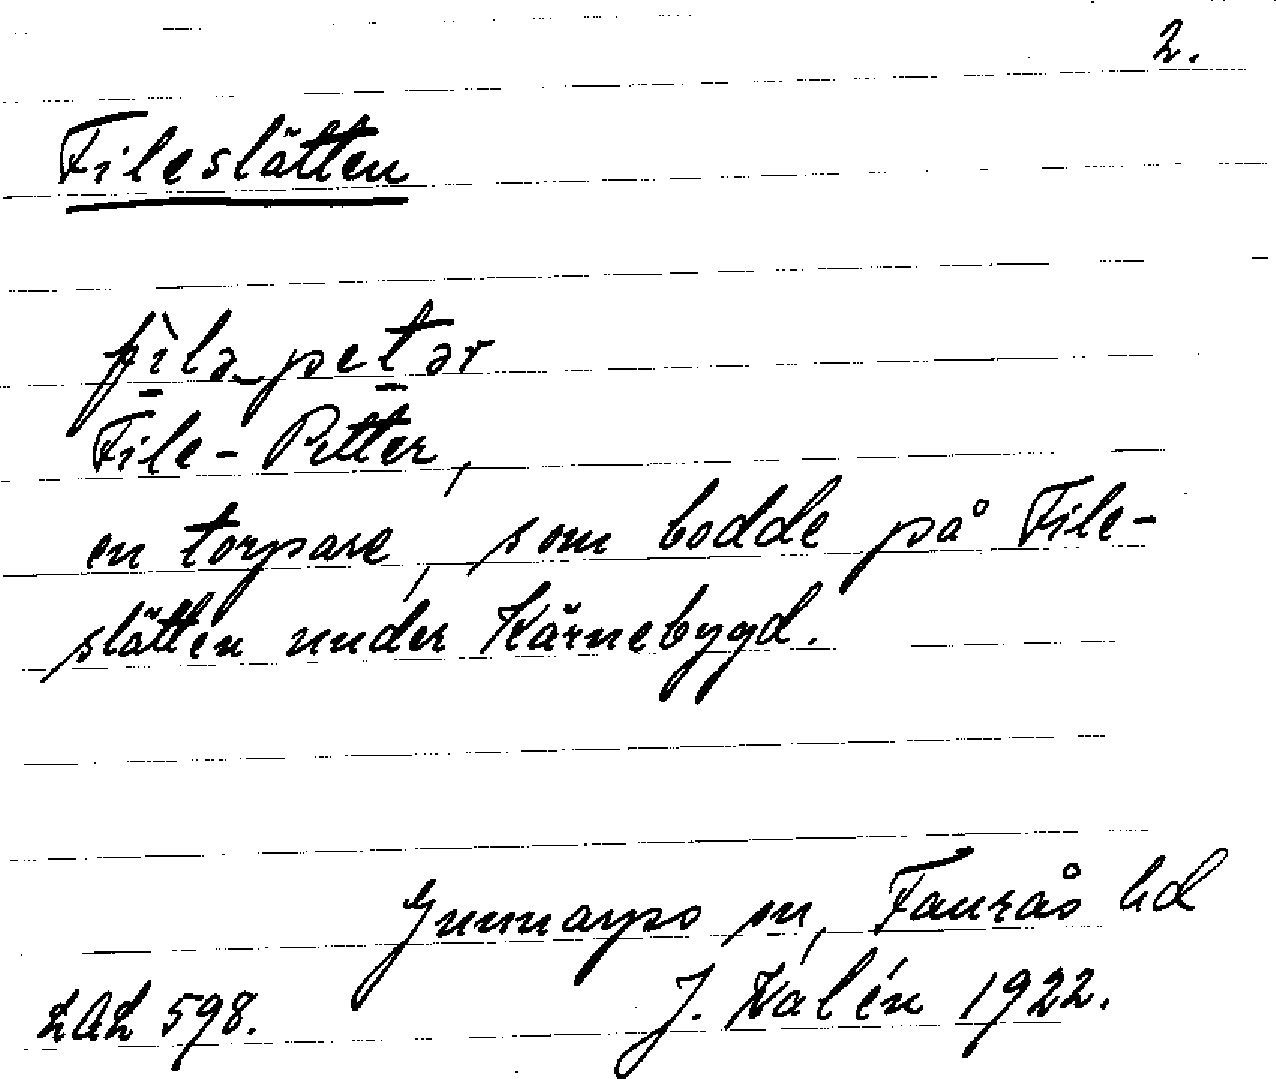 2.
Fileslätten
fìlə-petər
File-Petter,
en torpare, som bodde på File-
slätten under Kärnebygd.
Gunnarps sn, Faurås hd
LAL 598. J. Kalén 1922.